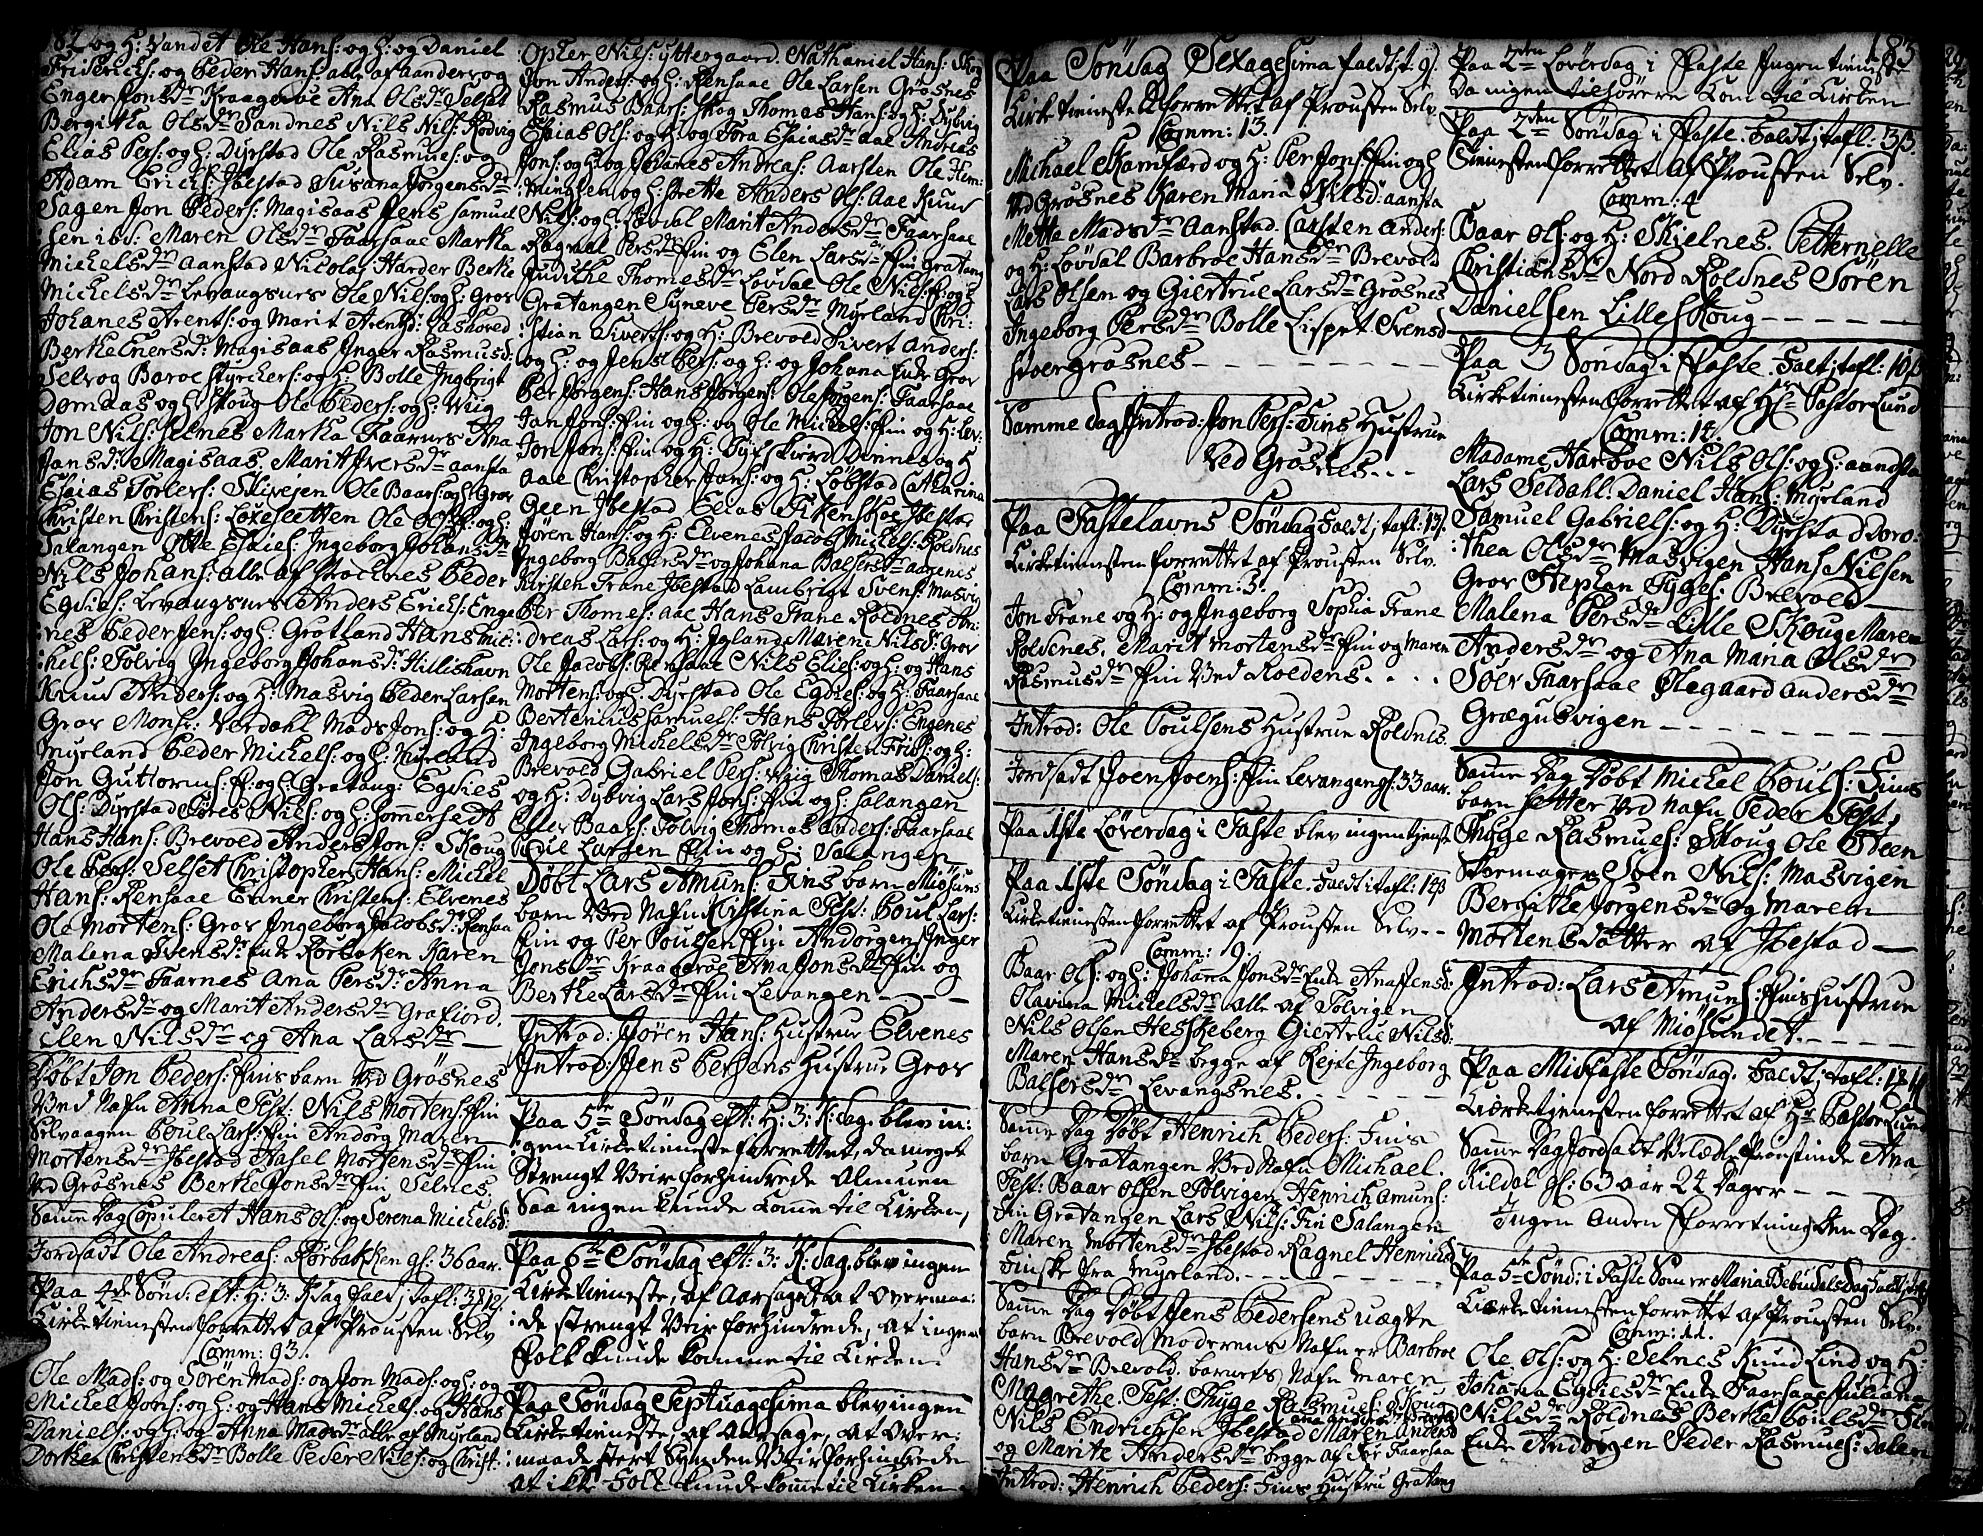 82 og H: Vandet Ole Hans: og H: og Daniel
Friderichs: og Peder Hans: alle af aanderog
Enger Jonsdr Kraagerøe Ana Olsdr Selset
Bergitha Olsdr Sandnes Nils Nils: Rødvig
Elias Pers: og H: Dyrstad Ole Rasmus: og
Adam Erichs: Ibestad Susana Jorgensdr
Sagen Jon Peders: Magisaas Jens Samuel
sen ibd: Maren Olsdr Faarsaae Martha
Michelsdr Aanstad Nicolaj Harder Berthe
Michelsdr Levangsnes Ole Nils: og H: Grov
Johanes Arents: og Marit Arentsd: Lashoved
Berthe Enersd: Magisaas Inger Rasmusd:
Selvog Baroe Styrchers: og H: Bolle Ingbrigt
Domaas og H: Skoug Ole Peders: og H: Wiig
Jon Nils: Selnes Martha Faarnes Ana
Jansdr Magisaas Marit Iversdr aansta
Esaias Torlers: Skivejen Ole Baars: og H: Grov
Christen Christens: Løkesletten Ole Ols: og H:
Salangen Otte Esaies: Ingeborg Johansdr
Nils Johans: alle af Strocknes Peder
Egdies: Levangsnes Anders Erichs: Enge
:nes Peder Jens: og H: Grotland Hans Mic:
:hels: Tolvig Ingeborg Johansdr Hillishavn
Knud Anders: og H: Masvig Peder Larsen
Grov Mons: Nordahl Mads Jons: og H:
Myrland Peder Michels: og H: Myrland
Jon Guttorms: Fin og H: Gratang: Egdies
Ols: Dyrstad Søren Nils: og H: Sommersedt
Hans Hans: Brevold Anders Jons: Skoug
Ole Pers: Selset Christopher Hans: Michel
Hans: Rensaae Enner Christens: Elvenes
Ole Mortens: Grov Ingeborg Jacobsdr Rensaa
Malena Svensdr Enke Rørbaken Karen
Erichsdr Faarnes Ana Persdr Anna
Andersdr og Marit Andersdr Grafiord.
Elen Nilsdr og Ana Larsdr —
Døbt Jon Peders: Fins barn Ved Grøsnes
Ved Nafn Anna Test: Nils Mortens: Fin
Selvaagen Poul Lars: Fin Andorg Maren
Mortensdr Ibestad Hasel Mortensdr Fin
Ved Grøsnes Berthe Jonsdr Fin Selnes.
Samme Dag Copuleret Hans Ols: og Serena Michelsd:
Jordsadt Ole Andreas: Rørbakken gl: 36 aar.
Paa 4de Sønd: eft: H: 3 K dag faldt; tafl: 3 # 12.
Kirketienesten forrettet af Prousten Selv
Comm: 93.
Ole Mads: og Søren Mads: og Jon Mads: og H: og
Michel Jons: og H: og Hans Michels: og Hans
Daniels: og H: og Anna Madsdr alle af Myrland
Dorthea Christensdr Bolle Peder Nils: og Christ:
Opher Nils: Yttergaard. Nathaniel Hans: Skog
Jon Anders: og H: Rensaae Ole Larsen Grøsnes
Rasmus Baars: Skog Thomas Hans: og H: Dybvig
Esaias Ols: og H: og Tora Esaiasdr aae Andreas
Jons: og H: og Johanes Andreas: Aarsten Ole Hem:
:mingsen og H: Grette Anders Ols: Aae Knud
Nils: og H: Løvdal Marit Andersdr Faarsaae
Ragnal Persdr Fin og Elen Larsdr Fin Gratang
Judithe Thomesdr Løvdal Ole Nils: F: og H:
Gratangen Syneve Persdr Myrland Chri:
:stian Siverts: og H: Brevold Sivert Anders:
og H: og Jens Pers: og H: og Johana Enke Grov
Per Jørgens: Hans Jørgens: Ole Jørgens: Faarsaae
Jan Jons: Fin og H: og Ole Michels: Fin og H: Lev:
Jon Jans: Fin og H: Dyrs Kierd Dennes og H
aae Christopher Jons: og H: Løbstad Catharina
Geen Ibestad Elias Fikenskoe Ibestad
Jøren Hans: og H: Elvenes Jacob Michels: Roldnes
Ingeborg Balsersdr og Johana Balsersdr aarenes
Kirsten Trane Ibestad Lambrigt Svens: Masvig
Per Thomes: aae Hans Trane Roldnes An:
:dreas Lars: og H: Igland Maren Nilsd: Grov
Ole Jacobs: Rensaae Nils Elies: og H: og Hans
Mortens: og H: Dyrstad Ole Egdies: og H: Faarsaae
Bertenius Samuels: Hans Torlers: Engenes
Ingeborg Michelsdr Tolvig Christen Frid: og H:
Brevold Gabriel Pers: Wiig Thomas Daniels:
og H: Dybvig Lars Jons: Fin og H: Salangen
Eller Baars: Tolvig Thomas Anders: Faarsaae
Edil Larsen Fin og H: Salangen
Døbt Lars Amuns: Fins barn Miøsund
barn Ved Nafn Kistina Test: Poul Lars:
Fin og Per Poulsen Fin Andorgens Inger
Jonsdr Kraagerøe Ana Jonsdr Fin og
Berthe Larsdr Fin Levangen — — —
Introd: Jøren Hans: Hustrue Elvenes
Introd: Jens Persens Hustrue Grov
Paa 5te Søndag eft: H: 3: K: dag. blev in:
:gen Kirketieneste forrettet, da meget
Strengt Veir forhindrede Almuen
Saa ingen kunde Komme til Kirken,
Paa 6te Søndag eft: 3: K: dag. blev ingen
Kirketieneste, af Aarsage at Overmaa:
:de strengt Veir forhindrede, at ingen
Folk kunde komme til Kirken.
Paa Søndag Septuagesima blev ingen
Kirketieneste, af Aarsage, at Over:
:maade stort Synden Veir forhindrede
at ikke Folk kunde komme til Kirken
183
Paa Søndag Sexagesima faldt; t. 9.
Kirketienesten forrettet af Prousten Selv.
Comm: 13.
Michael Skamferd og H: Per Jons: Fin og H
Ved Grøsnes Karen Maria Nilsd: aansta
Mette Madsdr Aanstad. Carsten Anders:
og H: Løvdal Barbroe Hansdr Brevold
Lars Olsen og Giertrue Larsdr Grøsnes
Ingeborg Persdr Bolle Lispet Svensd
Stoer Grøsnes — — — — — — —
Samme dag Introd: Jon Pers: Fins Hustrue
Ved Grøsnes — —
Paa Fastelavns Søndag Faldt; tafl: 13
Kirketienesten forrettet af Prousten Selv.
Comm: 5.
Jon Trane og H: og Ingeborg Sophia Trane
Roldnes. Marit Mortensdr Fin og Maren
Rasmusdr Fin Ved Roldens. . . .
Introd: Ole Poulsens Hustrue Roldnes.
Jordsadt Joen Joens: Fin Levangen gl: 33 aar.
Paa 1ste Løverdag i Faste blev ingen tieneste
Paa 1ste Søndag i Faste. Faldt i tafl: 14 β
Kirketienesten forrettet af Prousten Selv — —
Comm: 9.
Baar Ols: og H: Johana Jonsdr Enke Ana Jensd:
Olavina Michelsdr alle af Tolvigen
Nils Olsen Hesskeberg Giertrue Nilsd:
Maren Hansdr begge af Rejse Ingeborg
Balsersdr Levangsnes. — — — — —
Samme Dag Døbt Henrich Peders: Fins
barn Gratangen Ved Nafn Michael.
Test: Baar Olsen Tolvigen Henrich Amuns:
Fin Gratangen Lars Nils: Fin Salangen
Maren Mortensdr Ibestad Ragnel Henrichsd
Finske fra Myrland. — — — — —
Samme Dag Døbt Jens Pedersens uægte
barn Brevold Moderens Nafn er Barbroe
Hansdr Brevold. barnets Nafn Maren
Magrethe Test: Thyge Rasmus: Skoug
Nils Endrichsen Ibestad Maren Andersd
og Marite Andersdr begge af Sør Faarsaa
Introd: Henrich Peders: Fins Hustru Gratang
Paa 2den Løverdag i Faste Ingen tieneste
Da ingen tilhørere Kom til Kirken
Paa 2den Søndag i Faste. Faldt; tafl: 3 β.
Tienesten forrettet af Prousten Selv.
Comm: 4
Baar Ols: og H: Skielnes. Petternelle
Christiansdr Nord Roldnes Søren
Danielsen Lille Skoug — — — —
Paa 3 Søndag i Faste. Falt; tafl: 10 β
Kirketienesten forrettet af Hr Pastor Lund
Comm: 14.
Madame Harboe Nils Ols: og H: aanstad
Lars Seldahl. Daniel Hans: Myrland
Samuel Gabriels: og H: Dyrstad Doro:
:thea Olsdr Masvigen Hans Nilsen
Grov Stephan Tyges: Brevold —
Malena Persdr Lille Skouge Maren
Andersdr og Ana Maria Olsdr
Søer Faarsaae Ølegaard Andersdr
Grægusvigen — — — — —
Samme Dag Døbt Michel Pouls: Fins
barn Setter Ved Nafn Peder Test;
Thyge Rasmus: Skoug Ole Odeen
Stormagen Joen Nils: Masvigen
Bergithe Jorgensdr og Maren
Mortensdatter af Ibestad —
Introd: Lars Amuns: Fins Hustrue
af Miøsundet. — — — —
Paa Midfaste Søndag. Faldt; tafl: 1 #
Kirketienesten forrettet af Hr Pastor Lund
Samme Dag Jordsadt Velædle Proustinde Ana
Kildal gl: 63 aar 24 Dager — — —
Ingen Anden Forretning den Dag.
Paa 5te Sønd: i Faste Som er Maria Bebudelsdag Faldt; tafl
Kirketienesten forrettet af Prousten Selv.
Comm: 11.
Ole Ols: og H: Selnes Knud Lind og H:
Johana Egdiesdr Enke Faarsaae Juliana
Nilsdr Roldnes Berthe Poulsdr
Enke Andorgen Peder Rasmus: Dalen